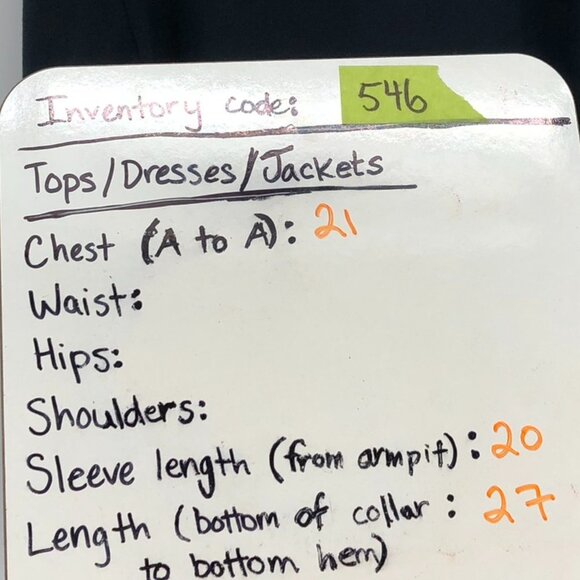 Inventory code: 546
Tops/Dresses/Jackets
Chest (A to A): 21
Waist:
Hips:
Shoulders:
Sleeve length (from armpit): 20
Length (bottom of collar : 27
to bottom hem)